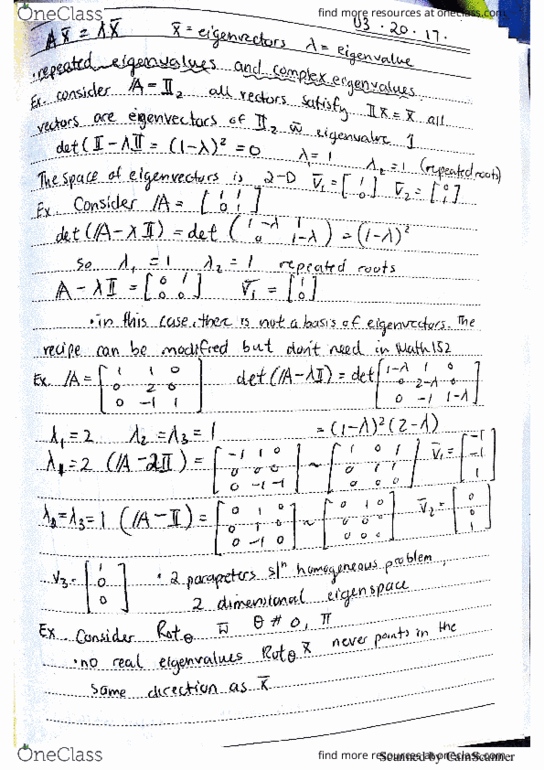 OneClass
find more resources at oneclass.com
03 · 20 · 17 ·
A x̄ = λx̄ x̄ = eigenvectors λ = eigenvalue
· repeated eigenvalues and complex eigenvalues
Ex. consider A = II₂ all vectors satisfy II x̄ = x̄ all
vectors are eigenvectors of II₂ w̄ eigenvalue 1
det(II - λII = (1-λ)² = 0 λ₁=1 λ₂=1 (repeated roots)
The space of eigenvectors is 2-D v̄₁ = [1 0] v̄₂ = [0 1]
Ex. Consider A = [1 1 0 1]
det(A - λII) = det (1-λ 1 0 1-λ) = (1-λ)²
so λ₁ = 1 λ₂ = 1 repeated roots
A - λII = [0 1 0 0] v̄₁ = [1 0]
· in this case, there is not a basis of eigenvectors. The
recipe can be modified but don't need in Math 152
Ex A = [1 1 0 0 2 0 0 -1 1] det(A - λII) = det [1-λ 1 0 0 2-λ 0 0 -1 1-λ]
λ₁ = 2 λ₂ = λ₃ = 1 = (1-λ)²(2-λ)
λ₁ = 2 (A - 2II) = [-1 1 0 0 0 0 0 -1 -1] ~ [1 0 1 0 1 1 0 0 0] v̄₁ = [-1 -1 1]
λ₂ = λ₃ = 1 (A - II) = [0 1 0 0 1 0 0 -1 0] ~ [0 1 0 0 0 0 0 0 0] v̄₂ = [0 0 1]
v₃ = [1 0 0] · 2 parameters slⁿ homogeneous problem,
2 dimensional eigenspace
Ex. Consider Rotθ w̄ θ ≠ 0, π
· no real eigenvalues Rotθ x̄ never points in the
same direction as x̄
OneClass
find more resources at oneclass.com
Scanned by CamScanner